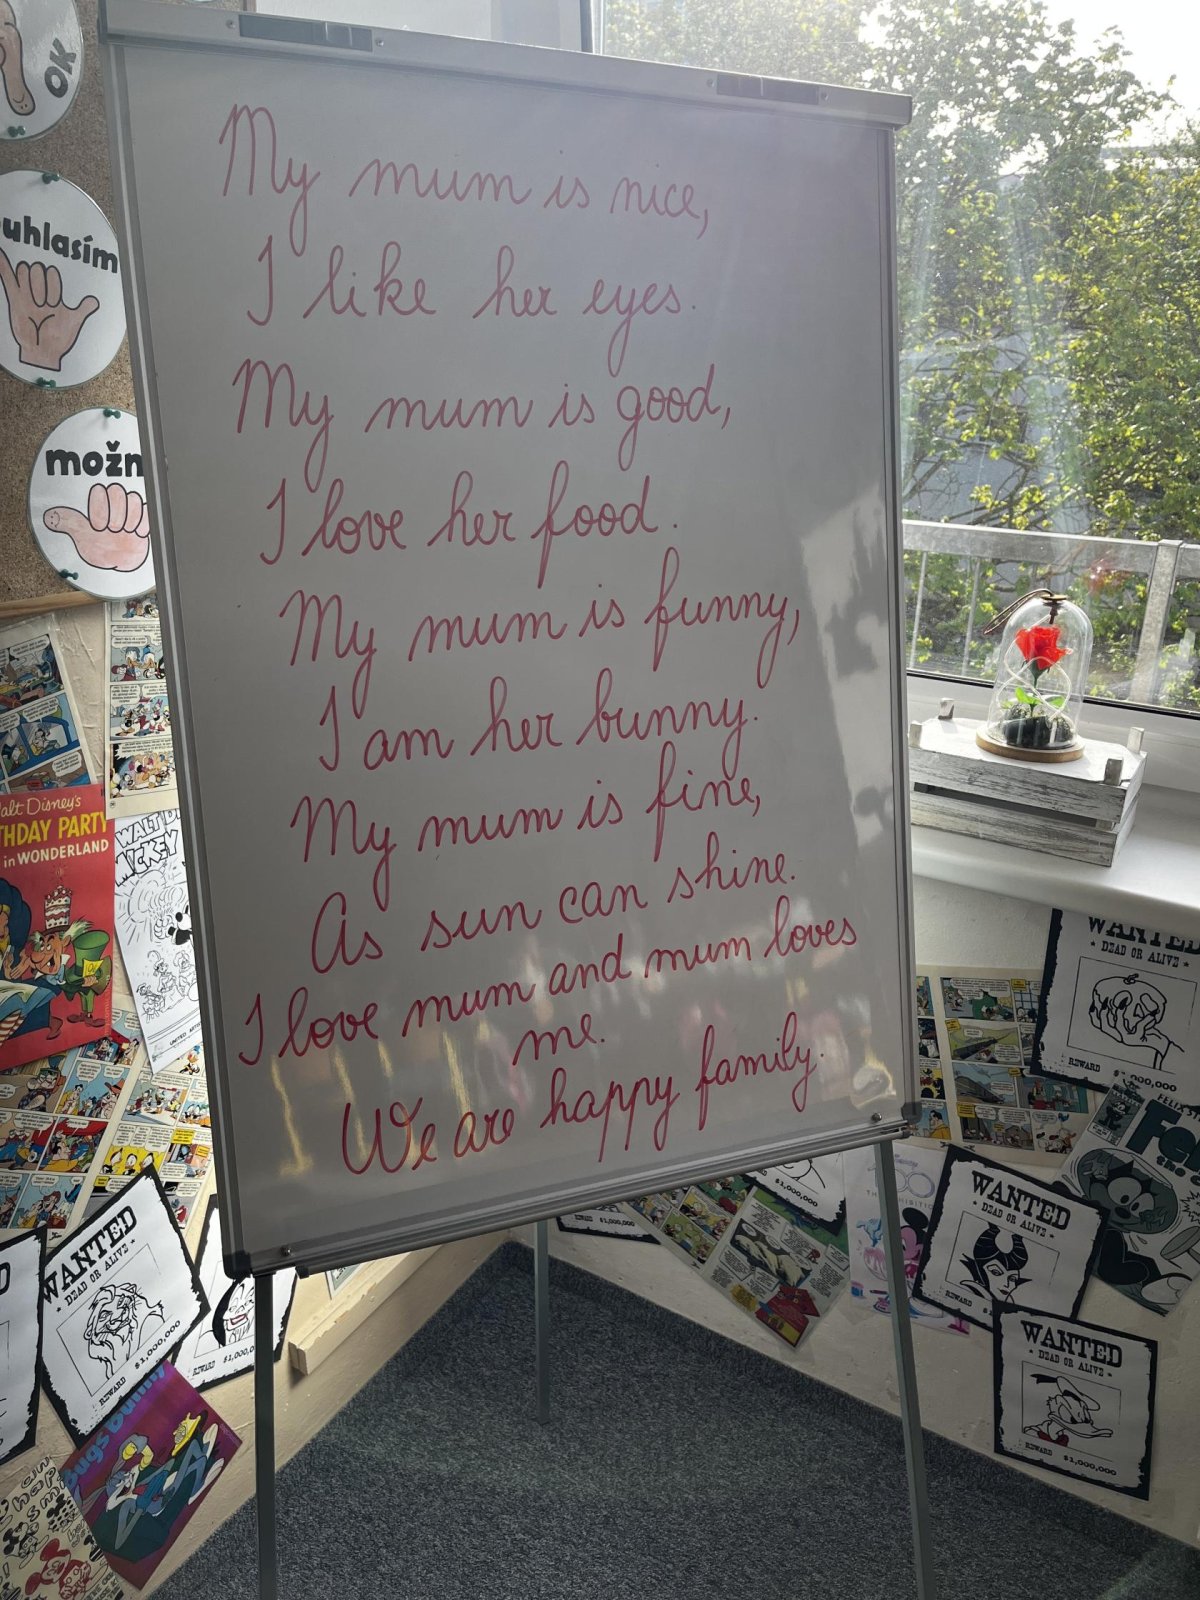 My mum is nice,
I like her eyes.
My mum is good,
I love her food.
My mum is funny,
I am her bunny.
My mum is fine,
As sun can shine.
I love mum and mum loves
me.
We are happy family.
OK
uhlasím
možn
alt Disney's
THDAY PARTY
in WONDERLAND
WALT DI
MICKEY
UNITED ARTIS
WANTED
DEAD OR ALIVE
REWARD $1,000,000
REWARD $1,000,0
Bugs Bunny
$1,000,000
WANTED
DEAD OR ALIVE
REWARD $1,000,000
FELIX
WANTED
DEAD OR ALIVE
REWARD
WANTED
DEAD OR ALIVE
REWARD $1,000,000